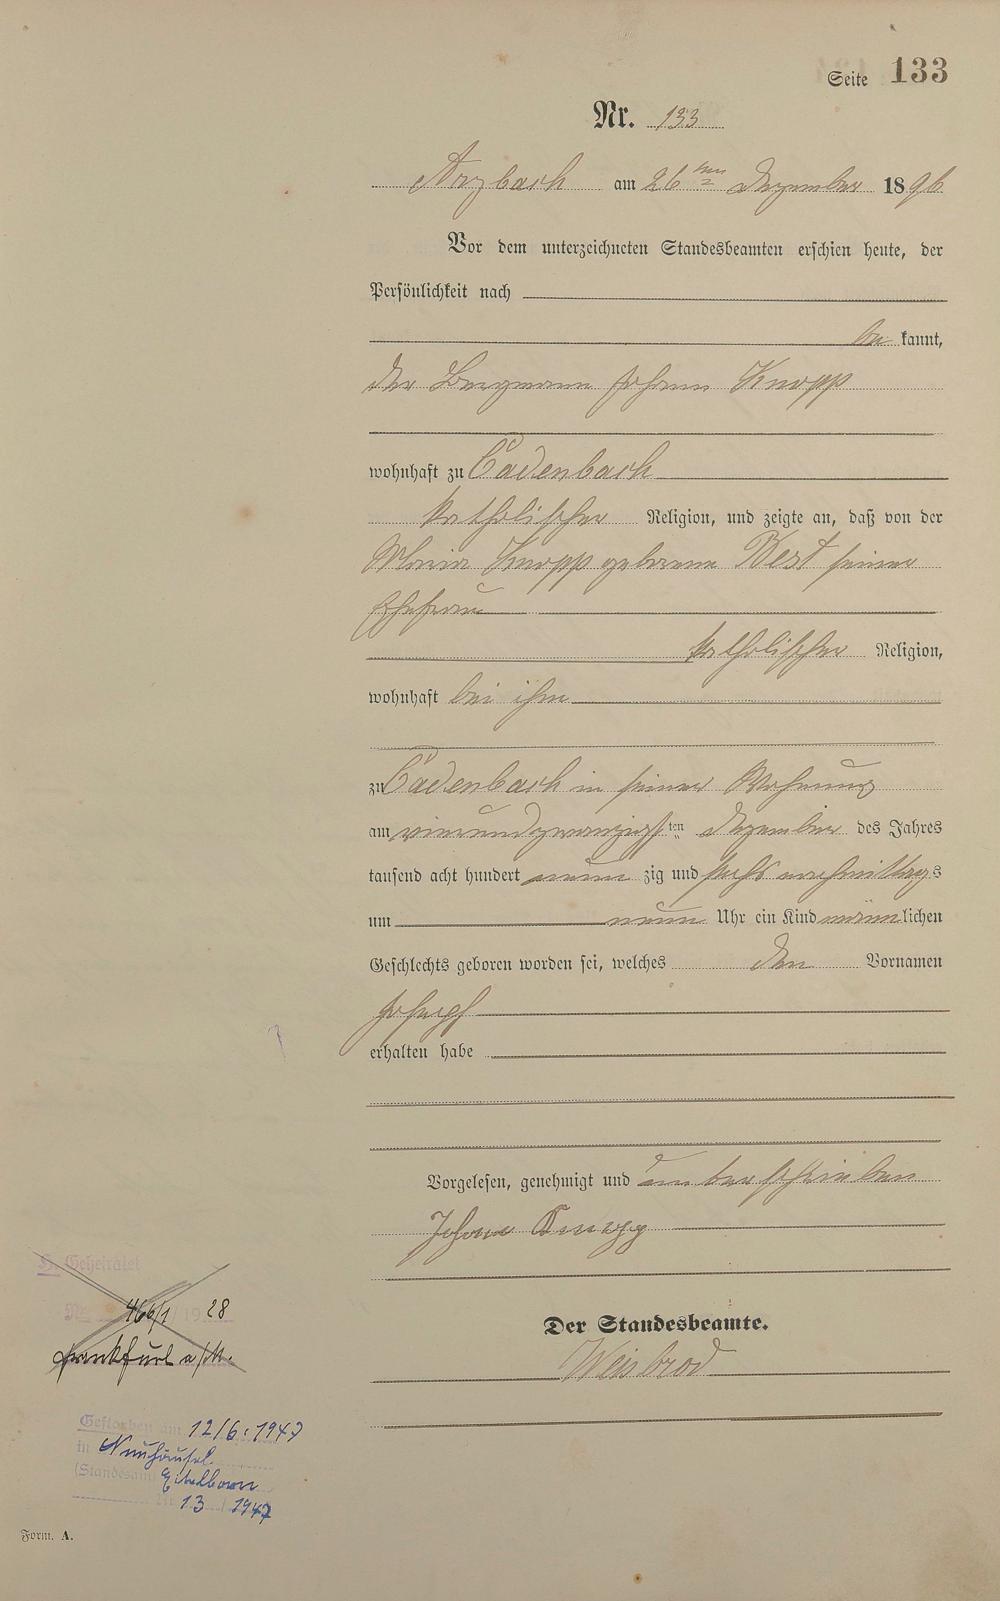 Seite 133
Nr. 133
Arzbach am 26ten Dezember 1896
Vor dem unterzeichneten Standesbeamten erschien heute, der
Persönlichkeit nach
be kannt,
der Bergmann Johann Knopp
wohnhaft zu Cadenbach
katholischer Religion, und zeigte an, daß von der
Maria Knopp geborene Best seiner
Ehefrau
katholischer Religion,
wohnhaft bei ihm
zu Cadenbach in seiner Wohnung
am vierundzwanzigsten Dezember des Jahres
tausend acht hundert neun zig und sechs nachmittags
um neun Uhr ein Kind männlichen
Geschlechts geboren worden sei, welches den Vornamen
Joseph
erhalten habe
Vorgelesen, genehmigt und unterschrieben
Johann Knopp
Der Standesbeamte.
Weisbrod
H. Geheiratet
Nr. 466/1 / 19 28
Frankfurt a/M.
Gestorben am 12/6. 1947
in Neuhäusel.
(Standesamt Eitelborn
Nr. 13 / 1947
Form. A.